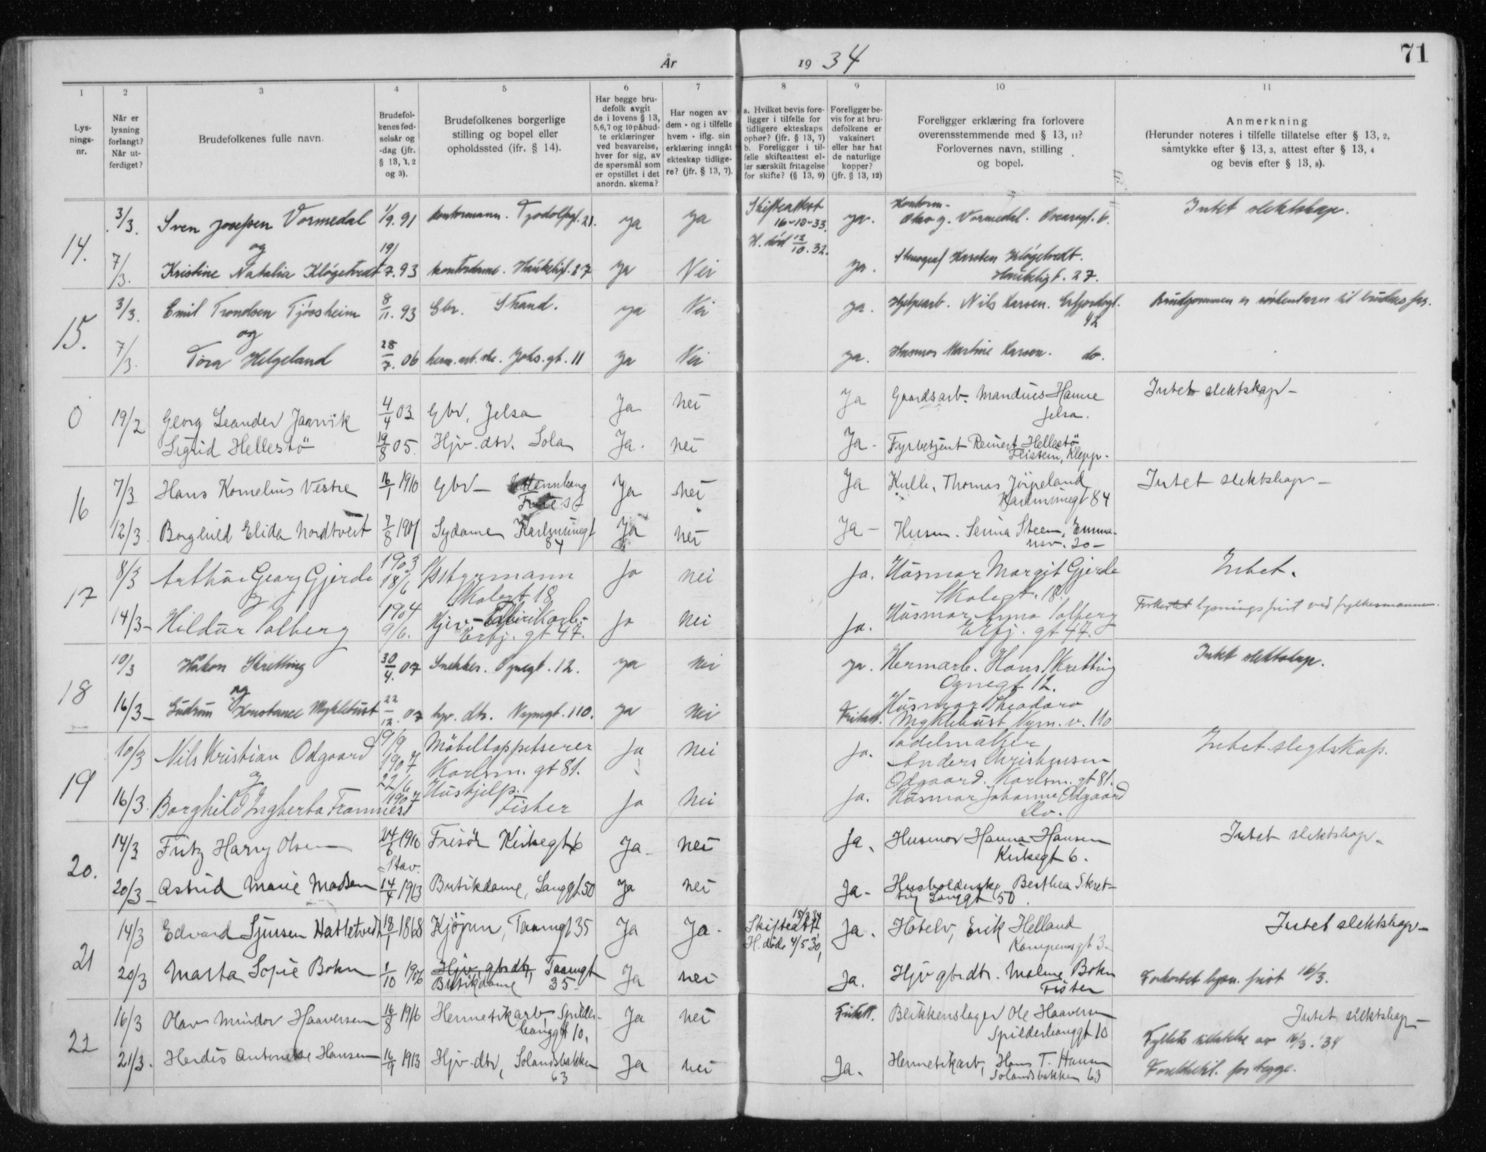 År 1934
71
1 2 3 4 5 6 7 8 9 10 11
Lysningsnr.
Når er lysning forlangt? Når utferdiget?
Brudefolkenes fulle navn.
Brudefolkenes fødselsår og -dag (jfr. § 13, 1, 2 og 3).
Brudefolkenes borgerlige stilling og bopel eller opholdssted (jfr. § 14).
Har begge brudefolk avgit de i lovens § 13, 5,6,7 og 10 påbudte erklæringer ved besvarelse, hver for sig, av de spørsmål som er opstillet i det anordn. skema?
Har nogen av dem - og i tilfelle hvem - iflg. sin erklæring inngått ekteskap tidligere? (jfr. § 13, 7).
a. Hvilket bevis foreligger i tilfelle for tidligere ekteskaps ophør? (jfr. § 13, 7) b. Foreligger i tilfelle skifteattest eller særskilt fritagelse for skifte? (§ 13, 9)
Foreligger bevis for at brudefolkene er vaksinert eller har hat de naturlige kopper? (jfr. § 13, 12)
Foreligger erklæring fra forlovere overensstemmende med § 13, 11? Forlovernes navn, stilling og bopel.
Anmerkning (Herunder noteres i tilfelle tillatelse efter § 13, 2, samtykke efter § 13, 3, attest efter § 13, 4 og bevis efter § 13, 8).
14. 3/3. Sven Josefsen Vormedal 1/9. 91 kontormann. 21. ya ya Skifteattest 16-10-33. ya. Vormedal. 6. Intet slektskap.
og H. død 12/10. 32.
7/3. Kristine Natalia Kløgetvedt 19/7. 93 27 ya Nei ya. Karsten Kløgetvedt. Haukeligt. 27.
15. 3/3. Emil Trondsen Tjøssheim 8/11. 93 Gbr. Strand. ya Nei ya. Nils Larsen. Erfjordgt. 42
og
7/3. Tora Helgeland 28/7. 06 Johs.gt. 11 ya Nei ya. Husmor Martine Larsen. do.
0 19/2 Georg Leander Jaarvik 4/4 03 Gbr, Jelsa Ja nei Ja Gaardsarb. Mandius Hanne Jelsa. Intet slektskap -
Sigrid Hellestö 19/8 05. Hjv. dtr. Sola Ja. nei Ja - Fyrbetjent Reinert Hellestö Feistein, Klepp.
16 7/3 Hans Kornelius Vestre 16/1 1910 Gbr - Ja nei Ja Kulle. Thomas Jörpeland Karlsmingt 84 Intet slektskap -
12/3 Borghild Elida Nordtveit 7/8 1901 Sydame Karlsmingt 84 Ja nei Ja - Husm. Senia Steen, 20 -
17 8/3 Arthur Georg Gjerde 1903 18/6 Styrmann Skolegt 18 Ja nei Ja. Husmor Margit Gjerde Skolegt. 18 Intet.
og
14/3 - Hildur Solberg 1904 9/6. Erfj. gt 47. Ja nei Ja. Husmor Anna Solberg Erfj. gt 47. Forkortet lysningsfrist ved fylkesmannen.
18 10/3 Håkon Skretting 30/4. 07 Snekker. Ognegt. 12. ya nei ya. Hermarb. Hans Skretting Ognegt 12. Intet slektskap.
og
16/3 - Gudrun Konstance Myklebust 22/12. 07 hjv. dtr. Nymgt. 110. ya nei Fritatt. Husmor Theodora Myklebust Nym. v. 110
19 10/3 Nils Kristian Odgaard 19/9 1907 Möbeltappetserer Karlsm. gt 81. Ja nei Ja. Sadelmaker Anders Christensen Odgaard. Karlsm. gt 81. Intet slegtskap.
og
16/3. Borghild Ingberta Framnes 22/6 1907 Hushjelp. Fister Ja nei Ja. Husmor Johanne Odgaard do.
20. 14/3 Fritz Harry Olsen 24/6 1910 Stav. Frisör Kirkegt 6 Ja nei Ja. Husmor Hanna Hansen Kirkegt 6. Intet slektskap -
20/3 - Astrid Marie Madsen 14/7 1913 Butikdame, Langgt. 50 Ja nei Ja - Husholderske Berthea Skretting Langgt 50.
21 14/3 Edvard Sjursen Hatletvedt 18/1 1868 Kjøpm, Taarngt 35 Ja Ja. Skifteatt. H. döde 4/5 30, Ja. Hotelv, Erik Helland Kongensgt 3 - Intet slektskap -
20/3 Marta Sofie Bokn 1/10 1906 Hjv. gbr.dtr, Butikdame Taarngt 35 Ja nei Ja. Hjv gbr.dtr. Malene Bokn Fister Forkortet lysn. frist 16/3.
22 16/3 Olav Mindor Haaversen 16/8 1916 Hermetikarb, Spilderhauggt 10, Ja nei Fritatt. Blikkenslager Ole Haaversen Spilderhauggt 10 Intet slektskap -
21/3. Herdis Antonette Hansen 16/9 1913 Hjv. dtr, Solandsbakken 63 Ja nei Ja. Hermetikarb, Hans T. Hansen Solandsbakken 63 Foreldretil. for begge.